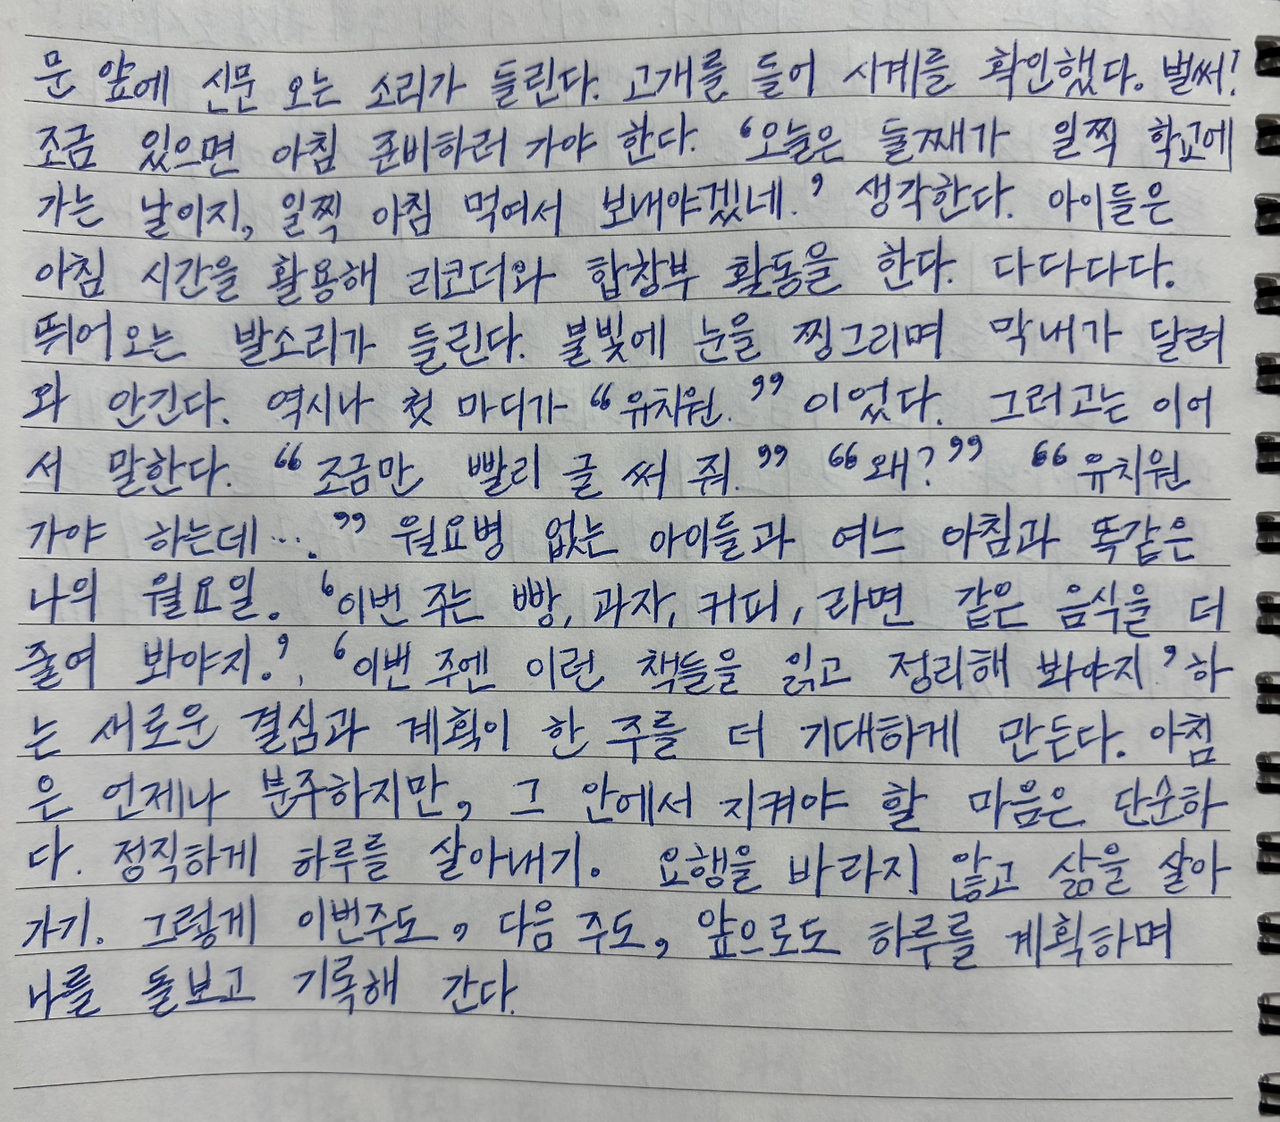 문 앞에 신문 오는 소리가 들린다. 고개를 들어 시계를 확인했다. 벌써!
조금 있으면 아침 준비하러 가야 한다. ‘오늘은 둘째가 일찍 학교에
가는 날이지, 일찍 아침 먹여서 보내야겠네.’ 생각한다. 아이들은
아침 시간을 활용해 리코더와 합창부 활동을 한다. 다다다다.
뛰어오는 발소리가 들린다. 불빛에 눈을 찡그리며 막내가 달려
와 안긴다. 역시나 첫 마디가 “유치원.” 이었다. 그러고는 이어
서 말한다. “조금만 빨리 글 써 줘.” “왜?” “유치원
가야 하는데….” 월요병 없는 아이들과 여느 아침과 똑같은
나의 월요일. ‘이번 주는 빵, 과자, 커피, 라면 같은 음식을 더
줄여 봐야지.’, ‘이번 주엔 이런 책들을 읽고 정리해 봐야지’ 하
는 새로운 결심과 계획이 한 주를 더 기대하게 만든다. 아침
은 언제나 분주하지만, 그 안에서 지켜야 할 마음은 단순하
다. 정직하게 하루를 살아내기. 요행을 바라지 않고 삶을 살아
가기. 그렇게 이번주도, 다음 주도, 앞으로도 하루를 계획하며
나를 돌보고 기록해 간다.